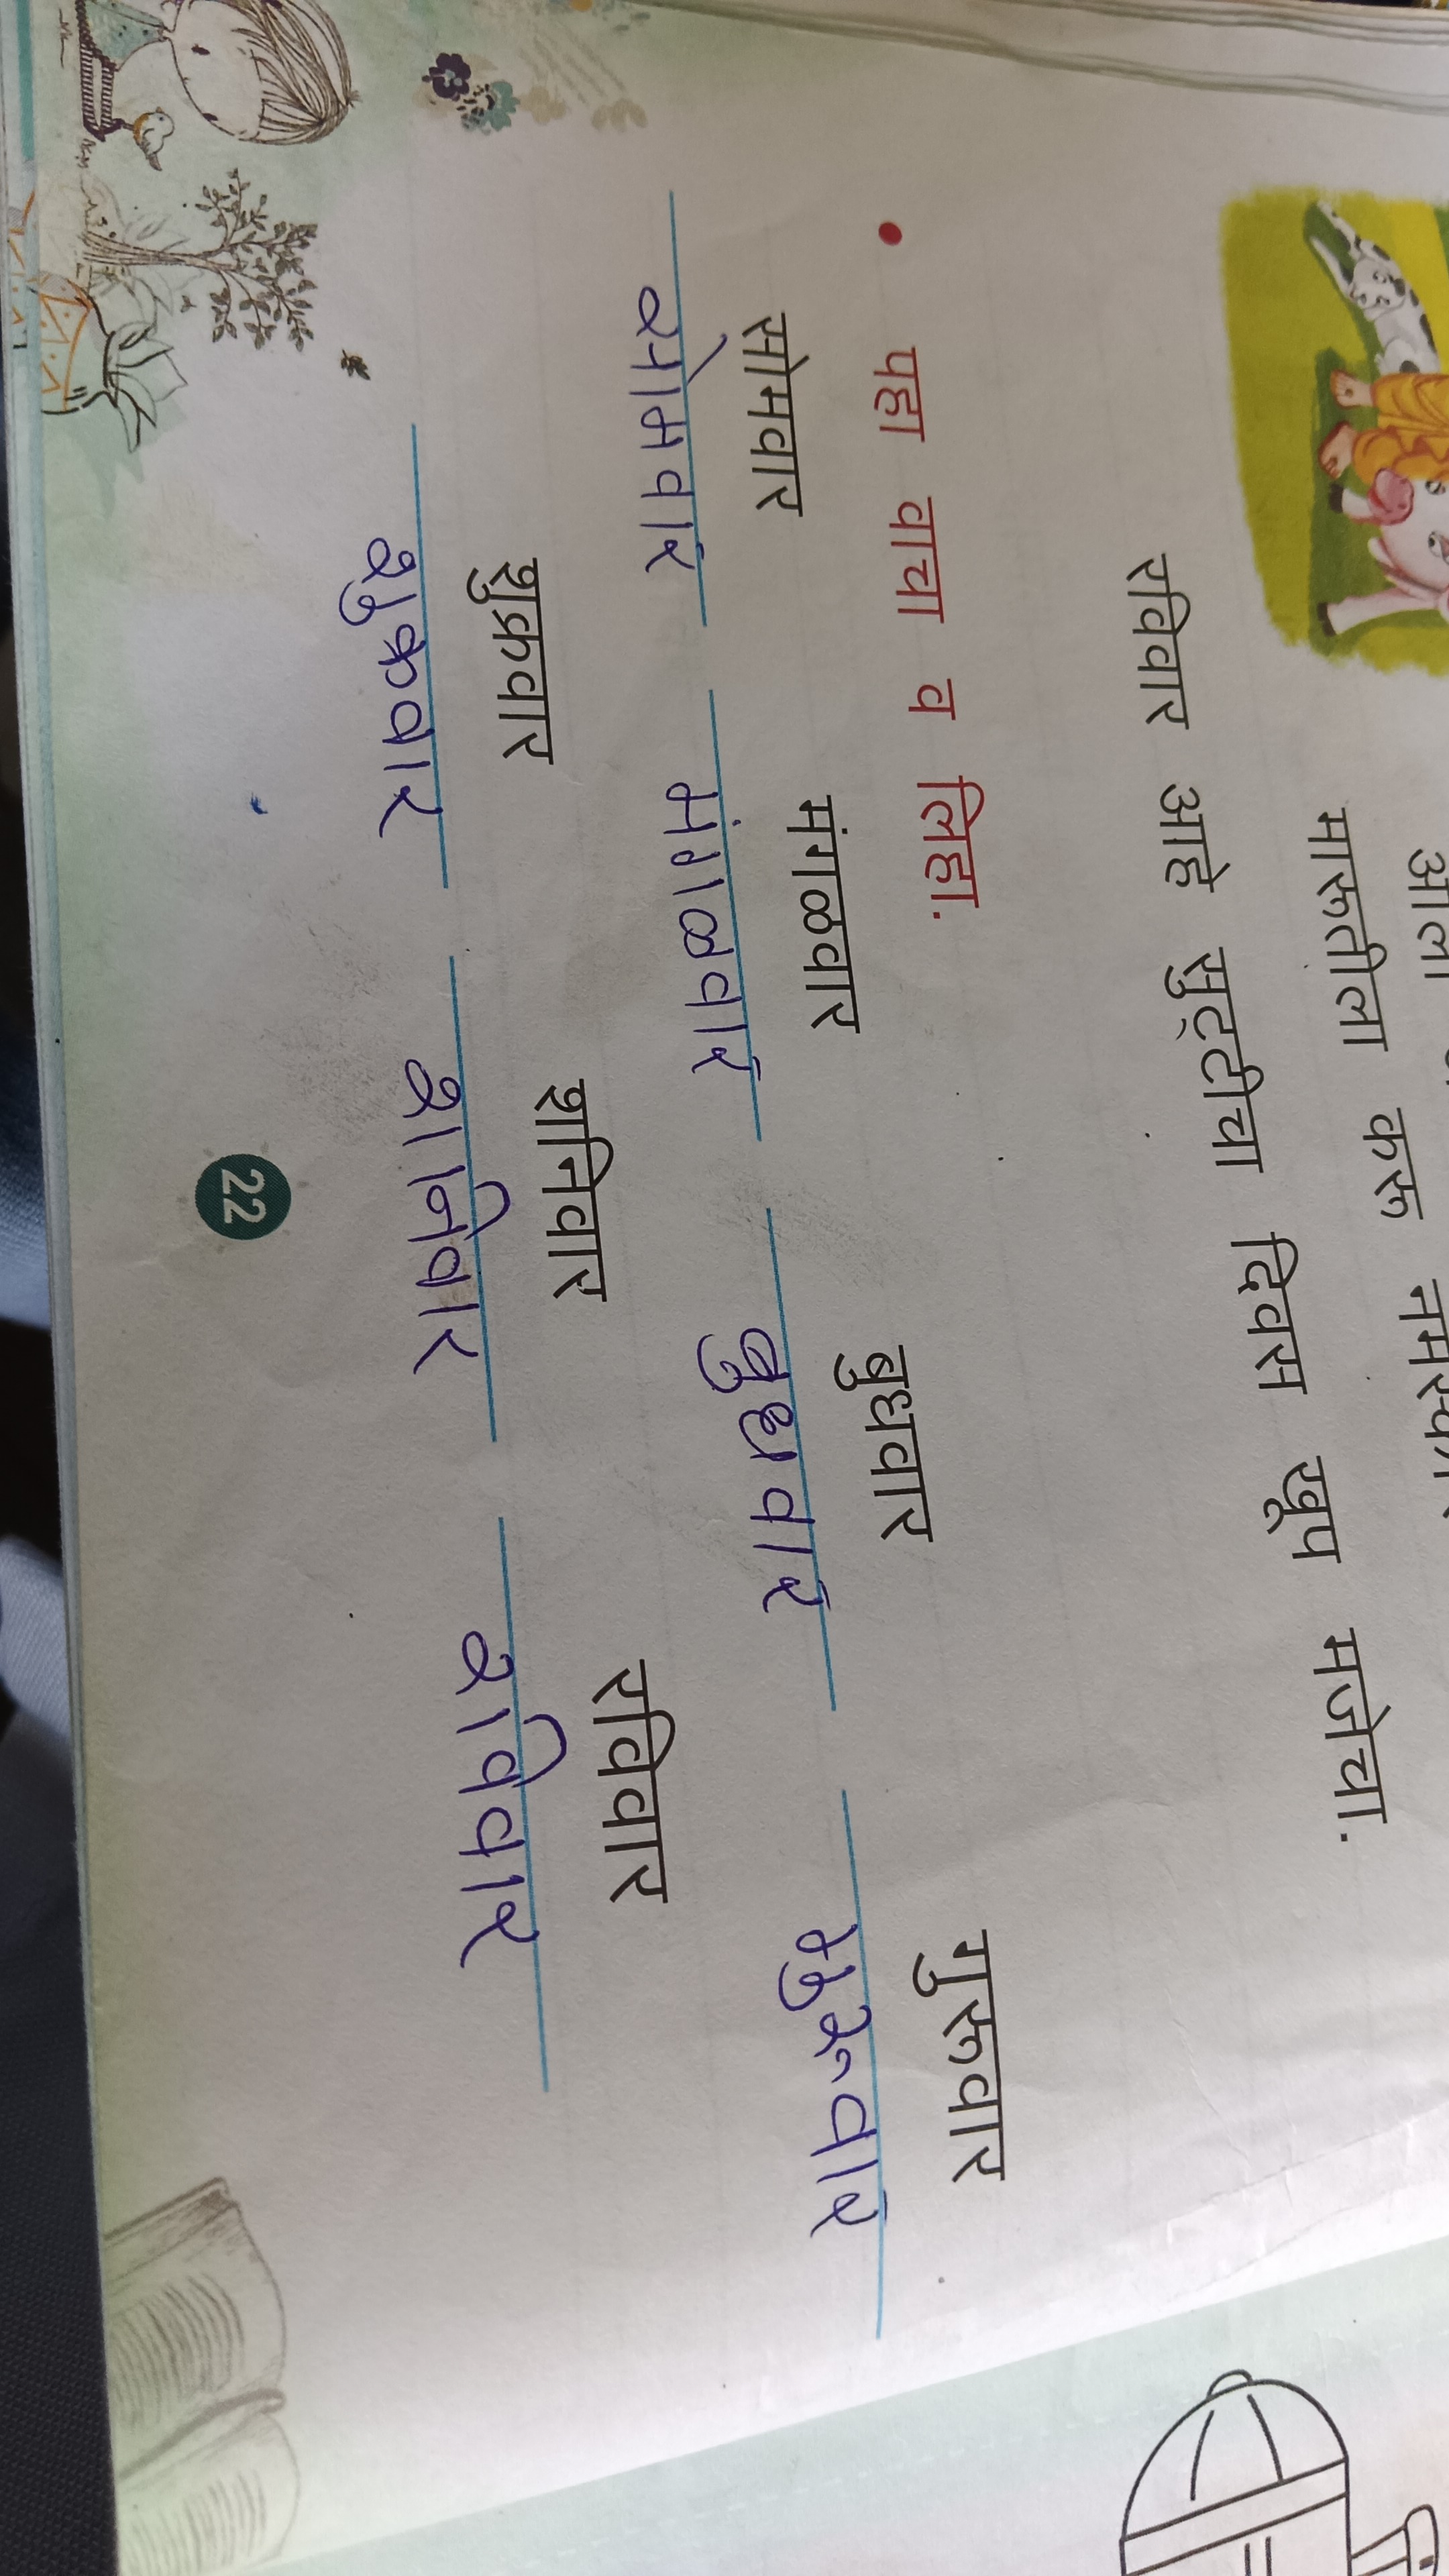 मारूतीला करू
रविवार आहे सुट्टीचा दिवस खूप मजेचा.
• पहा वाचा व लिहा.
सोमवार मंगळवार बुधवार गुरूवार
सोमवार मंगळवार बुधवार गुरूवार
शुक्रवार शनिवार रविवार
शुक्रवार शनिवार रविवार
22